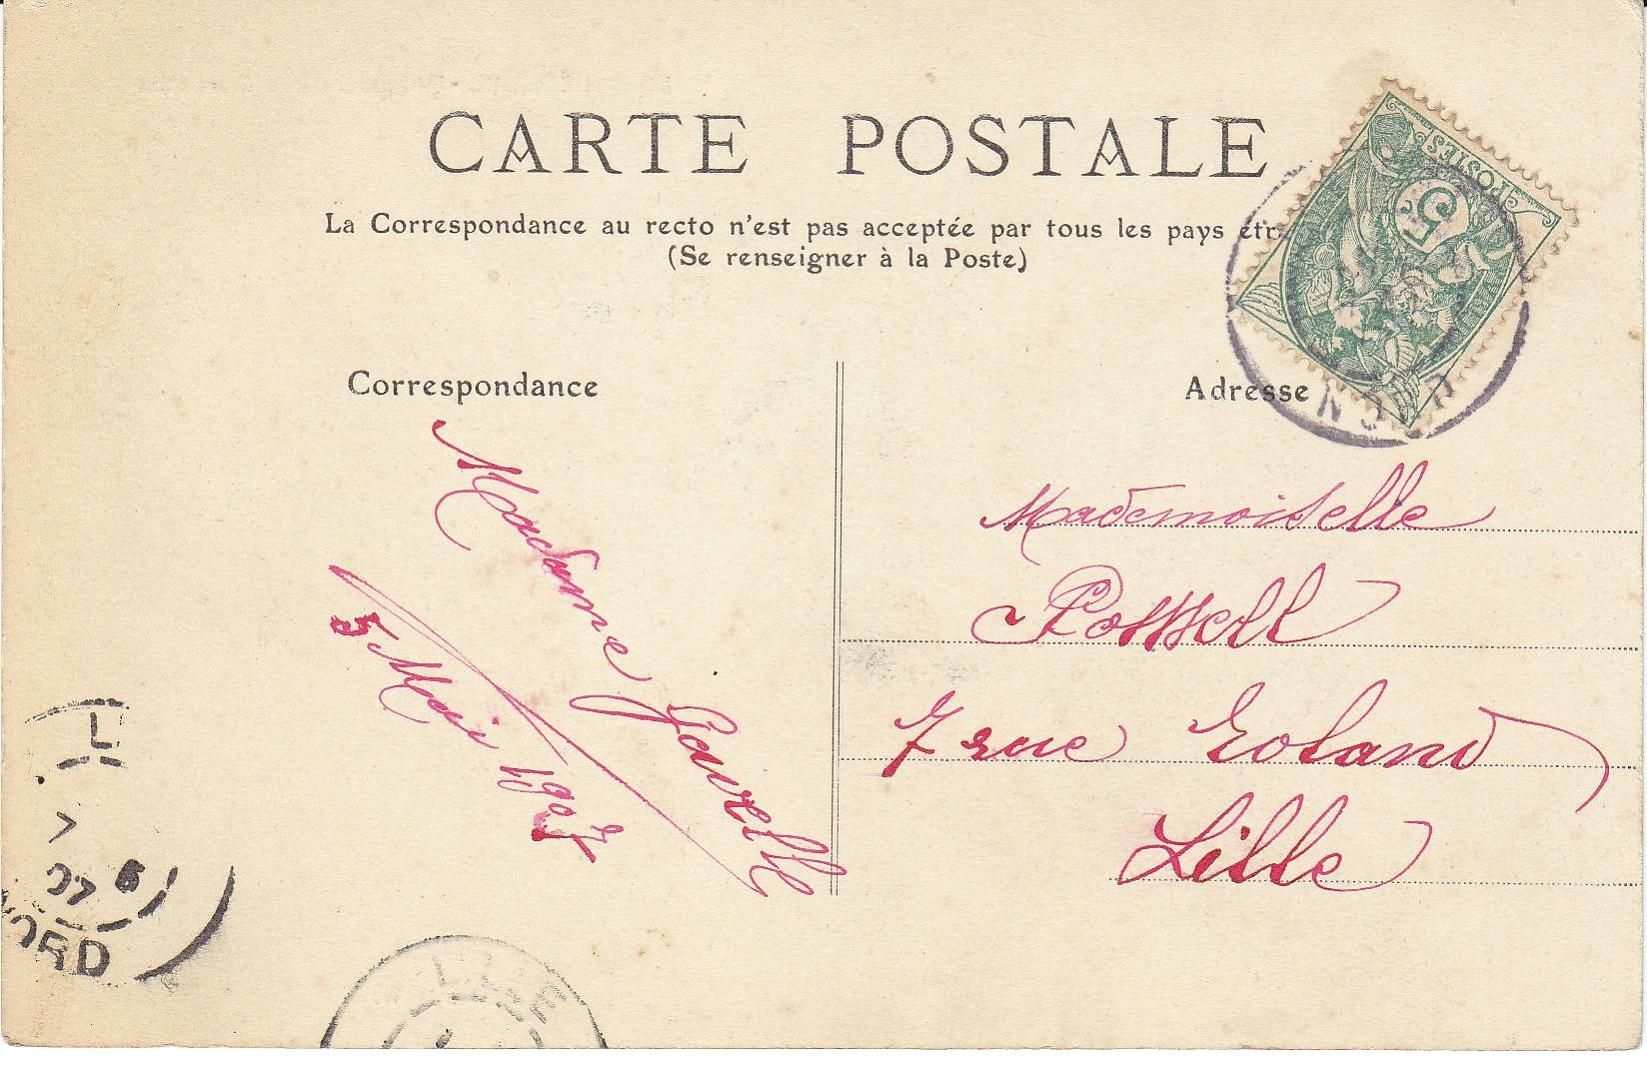 CARTE POSTALE
La Correspondance au recto n'est pas acceptée par tous les pays étr
(Se renseigner à la Poste)
POSTES
5
NORD
Correspondance
Adresse
Madame
5 Mai 1907
Mademoiselle
7 rue
Lille
L
7
5
07
NORD
LILLE